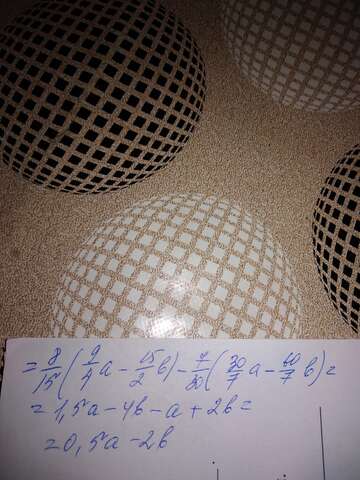 = 8/15 (9/4 a - 15/2 b) - 7/30 (30/7 a - 60/7 b) =
= 1,5a - 4b - a + 2b =
= 0,5a - 2b